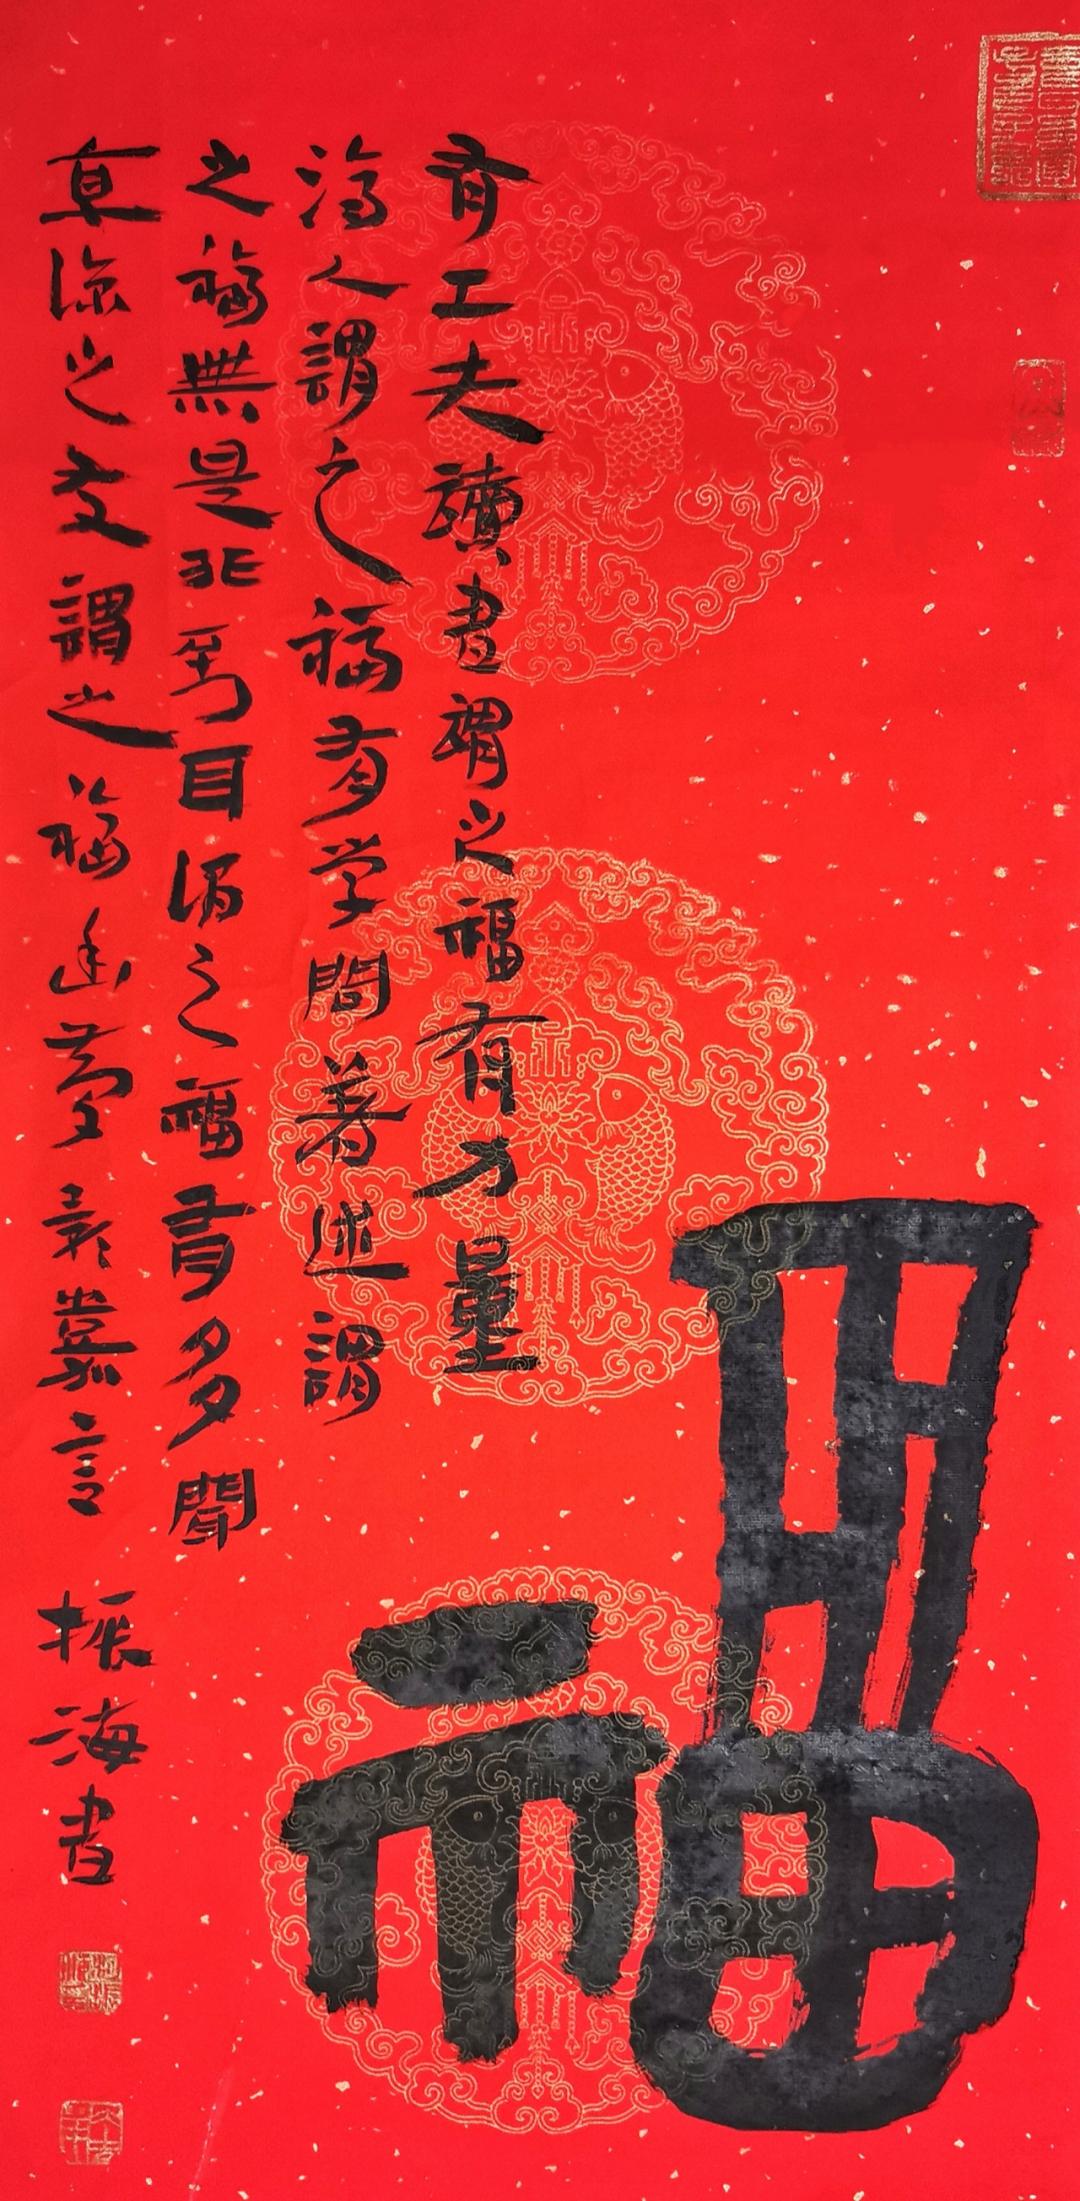 福
有工夫讀書謂之福有力量
濟人謂之福有学問著述謂
之福無是非到耳謂之福有多聞
直諒之友謂之福幽夢影嘉言
振海書